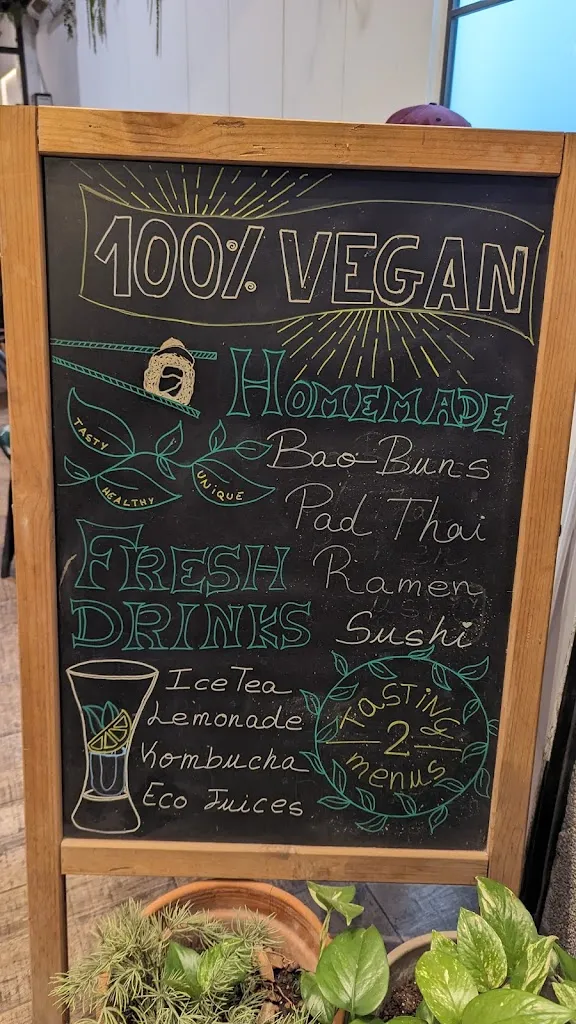 100% VEGAN
HOMEMADE
Bao-Buns
Pad Thai
Ramen
Sushi
TASTY
HEALTHY
UNIQUE
FRESH
DRINKS
Ice Tea
Lemonade
Kombucha
Eco Juices
TASTING
2
menus